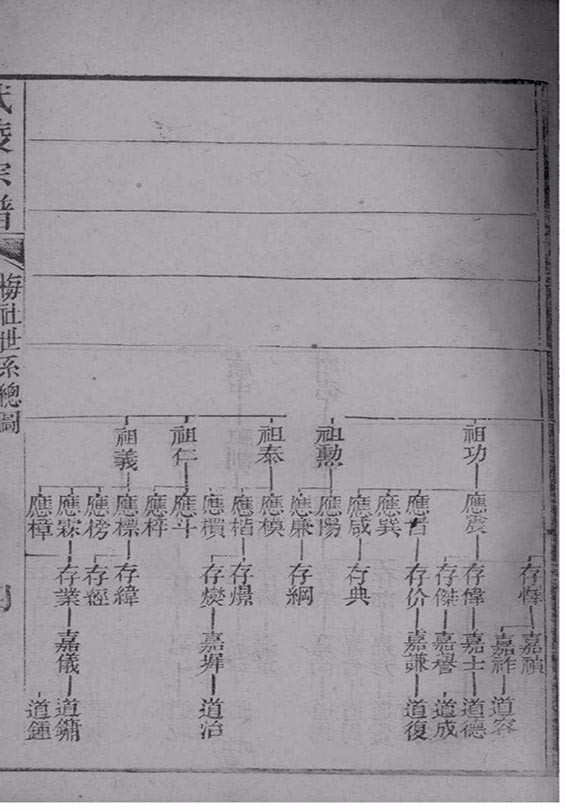 祖功
祖勲
祖泰
祖仁
祖義
應震
應晉
應巽
應咸
應陽
應廉
應模
應楷
應檟
應斗
應梓
應標
應榜
應霖
應樟
存惲
存偉
存傑
存价
存典
存綱
存燝
存燮
存緯
存經
存業
嘉禎
嘉祚
嘉士
嘉譽
嘉謙
嘉墀
嘉儀
道容
道德
道成
道復
道治
道鏞
道鍾
宗譜
梅社世系總圖